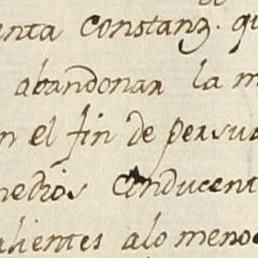 enta constanz. qu
abandonar la m
n el fin de persua
medios conducent
alientes alo menos